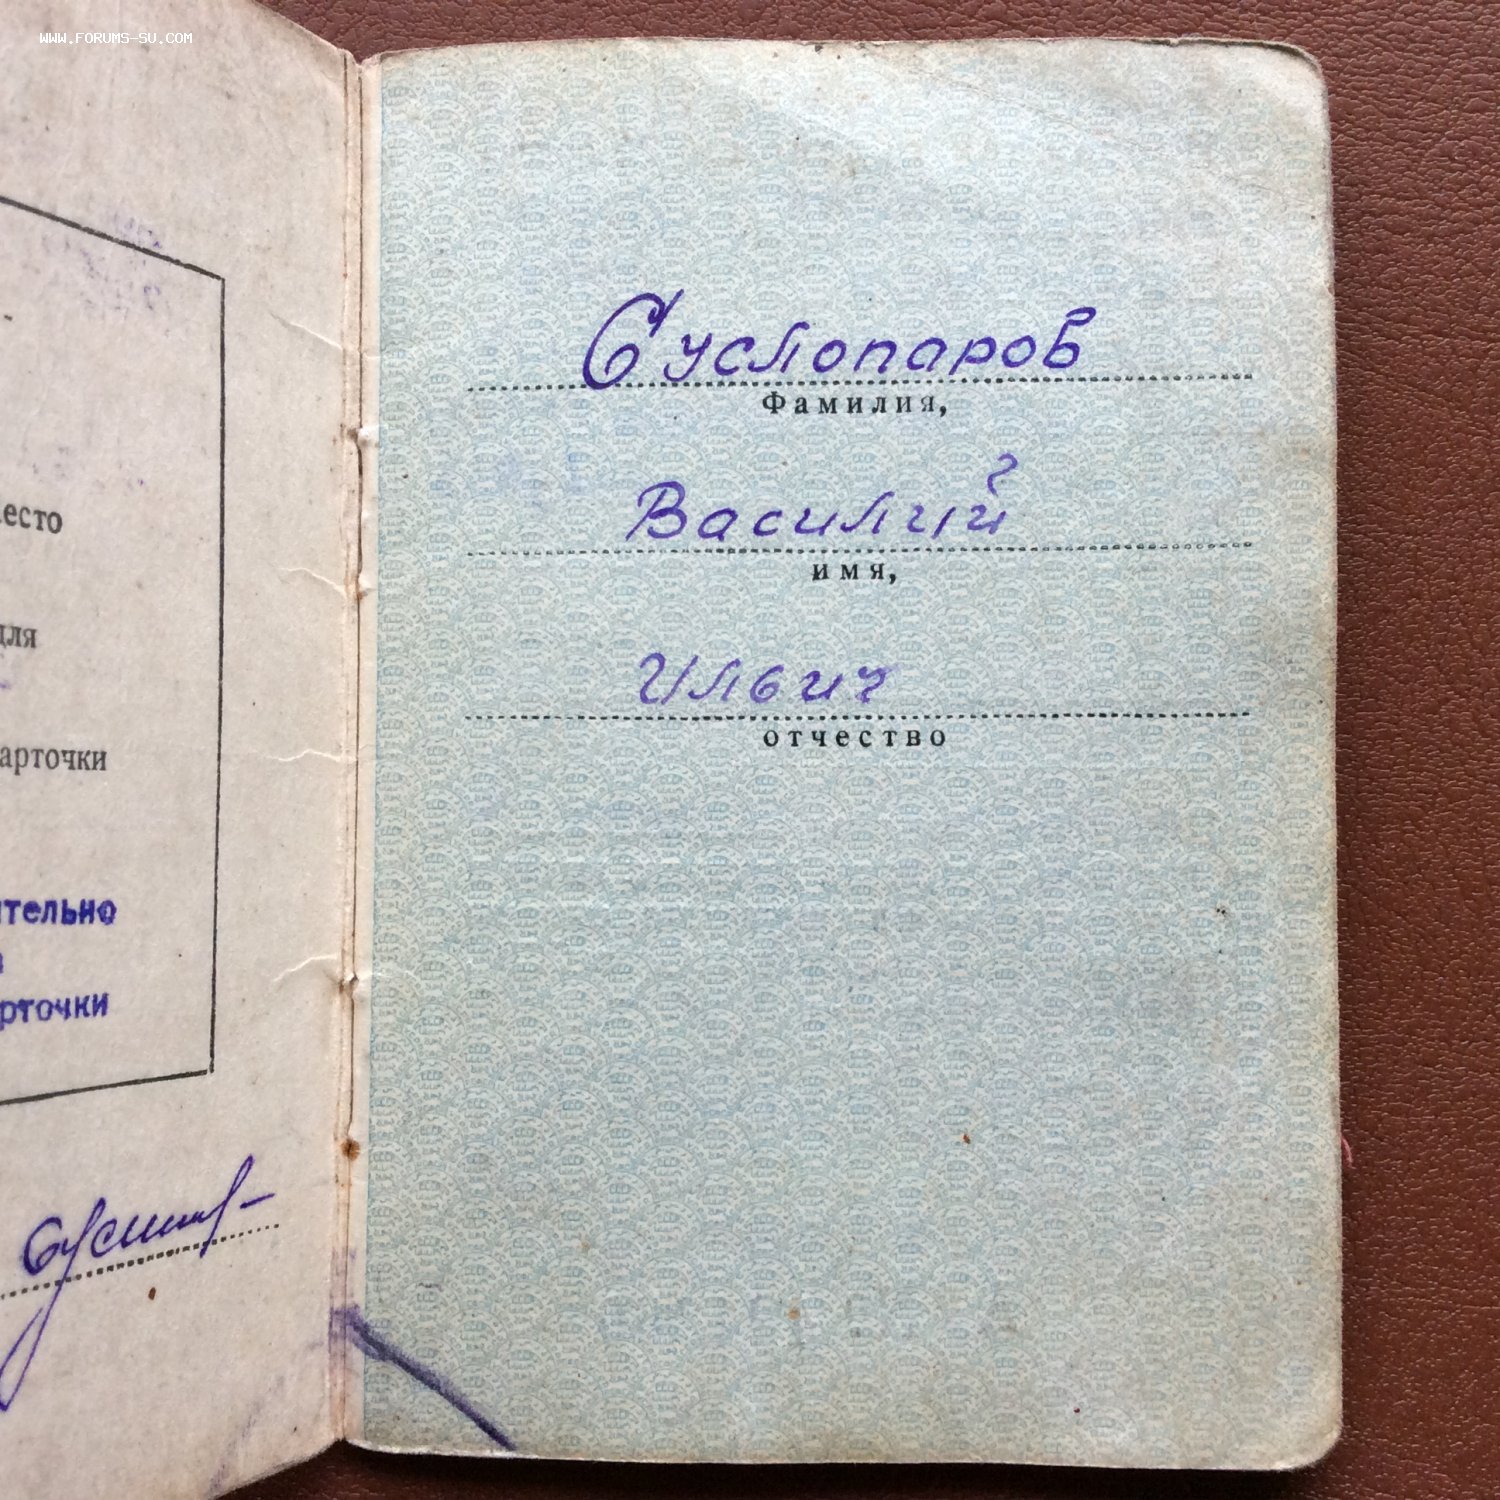 WWW.FORUMS-SU.COM
есто
для
арточки
ительно
арточки
Суслопаров
Фамилия,
Василий
имя,
Ильич
отчество